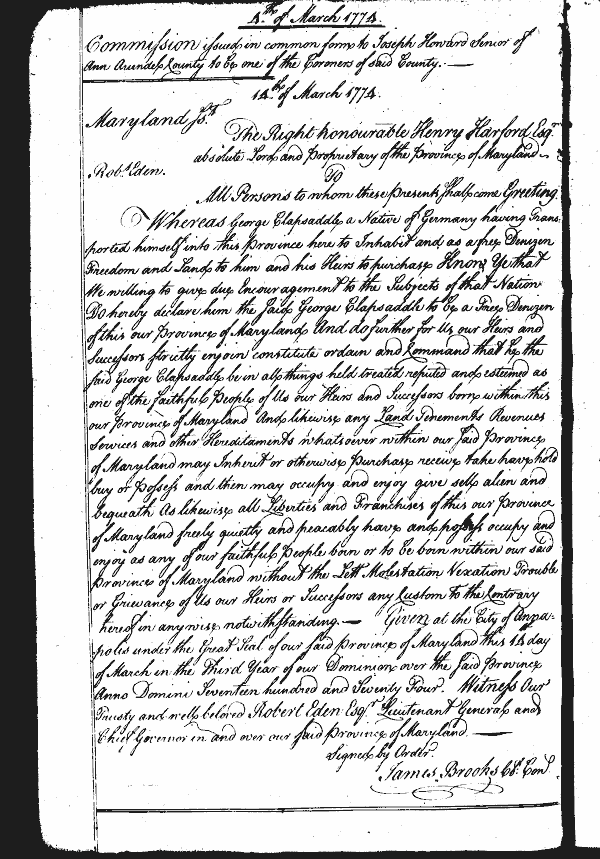 4th of March 1774.
Commission issued in common form to Joseph Howard Senior of
Ann Arundel County to be one of the Coroners of said County. —
14th of March 1774.
Maryland Js.t
The Right honourable Henry Harford Esqr
absolute Lord and Proprietary of the Province of Maryland
Robt Eden.
To
All Persons to whom these Presents shall come Greeting
Whereas George Clapsaddle a Native of Germany having Trans-
ported himself into this Province here to Inhabit and as a free Denizen
Freedom and Land to him and his Heirs to purchase Know Ye that
We willing to give due Encouragement to the Subjects of that Nation
Do hereby declare him the said George Clapsaddle to be a Free Denizen
of this our Province of Maryland And do further for Us our Heirs and
Successors strictly enjoin constitute ordain and Command that he the
said George Clapsaddle be in all things held treated reputed and esteemed as
one of the faithful People of Us our Heirs and Successors born within this
our Province of Maryland And likewise any Land Tenements Revenues
Services and other Hereditaments whatsoever within our said Province
of Maryland may Inherit or otherwise Purchase receive take have hold
buy or Possess and them may occupy and enjoy give sell alien and
bequeath As likewise all Liberties and Franchises of this our Province
of Maryland freely quietly and peacably have and possess occupy and
enjoy as any of our faithful People born or to be born within our said
Province of Maryland without the Lett Molestation Vexation Trouble
or Grievance of Us our Heirs or Successors any Custom to the Contrary
hereof in any wise notwithstanding. — Given at the City of Anna-
polis under the Great Seal of our said Province of Maryland this 14 day
of March in the Third Year of our Dominion over the said Province
Anno Domini Seventeen hundred and Seventy Four. Witness Our
Trusty and well beloved Robert Eden Esqr Lieutenant General and
Chief Governor in and over our said Province of Maryland. —
Signed by Order.
James Brooks Cl. Con.